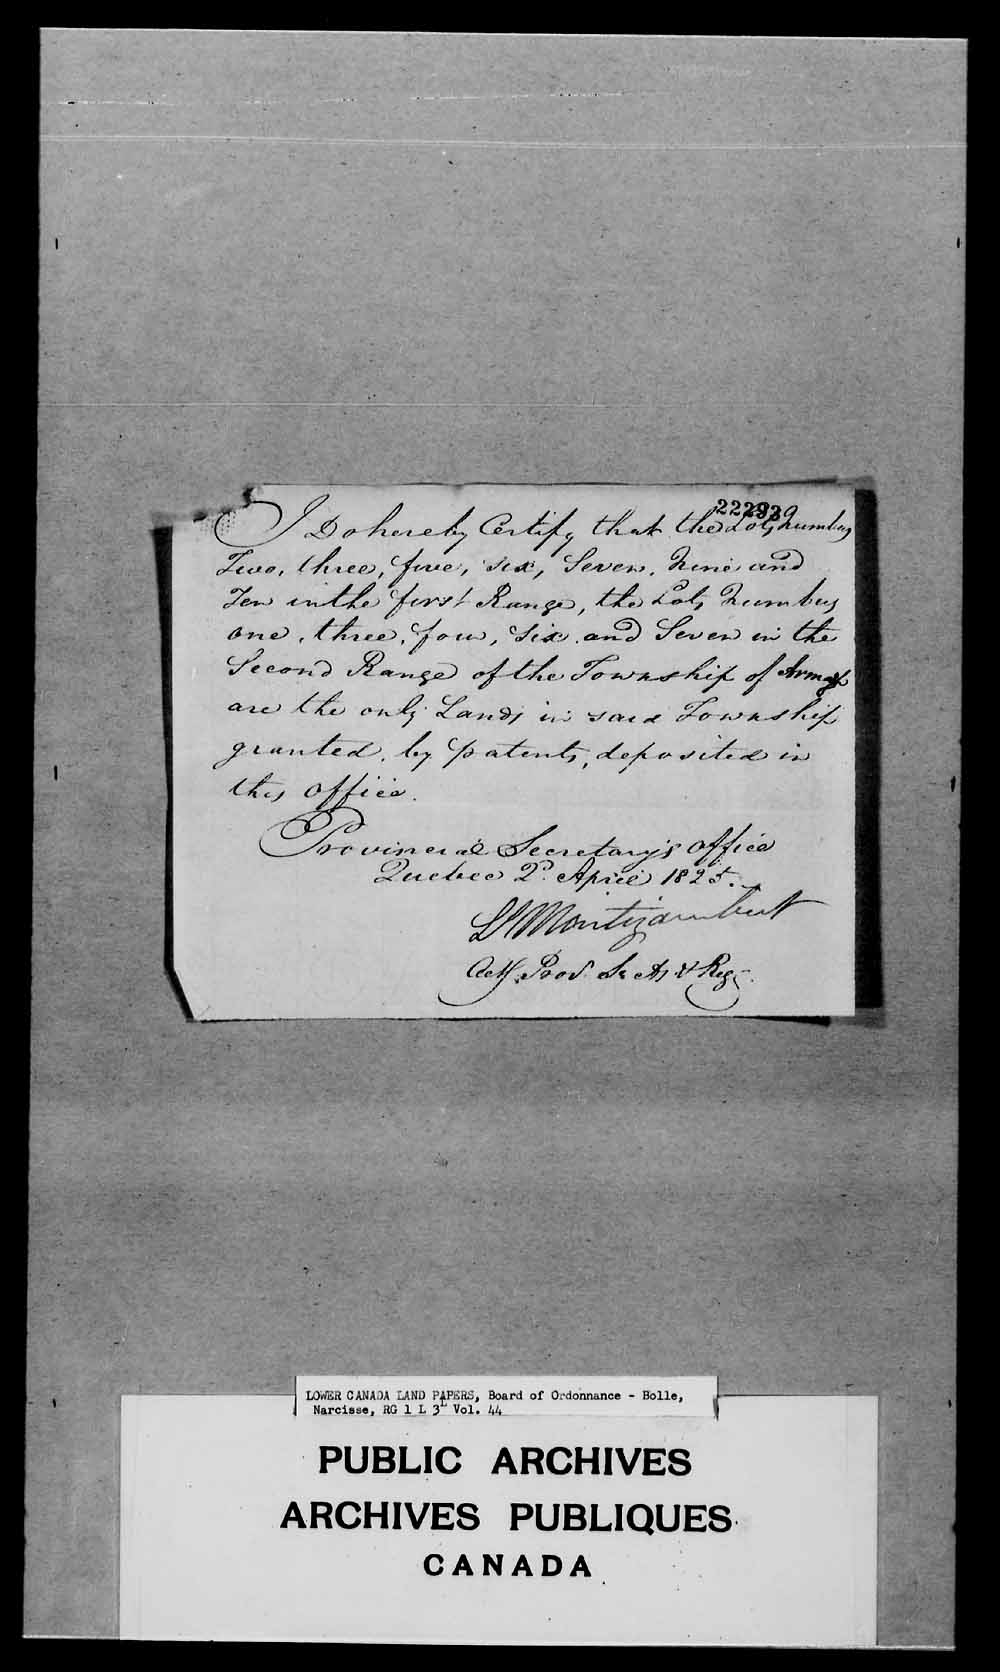 22293
I Do hereby Certify that the Lots Numbers
Two, three, five, six, Seven, Nine and
Ten in the first Range, the Lots Numbers
one, three, four, six and Seven in the
Second Range of the Township of Armagh
are the only Lands in said Township
granted by patents, deposited in
this office.
Provincial Secretary's Office
Quebec 2d. April 1825.
Montizambert
Actg. Prov. & Reg.
LOWER CANADA LAND PAPERS, Board of Ordonnance - Bolle,
Narcisse, RG 1 L 3L Vol. 44
PUBLIC ARCHIVES
ARCHIVES PUBLIQUES
CANADA